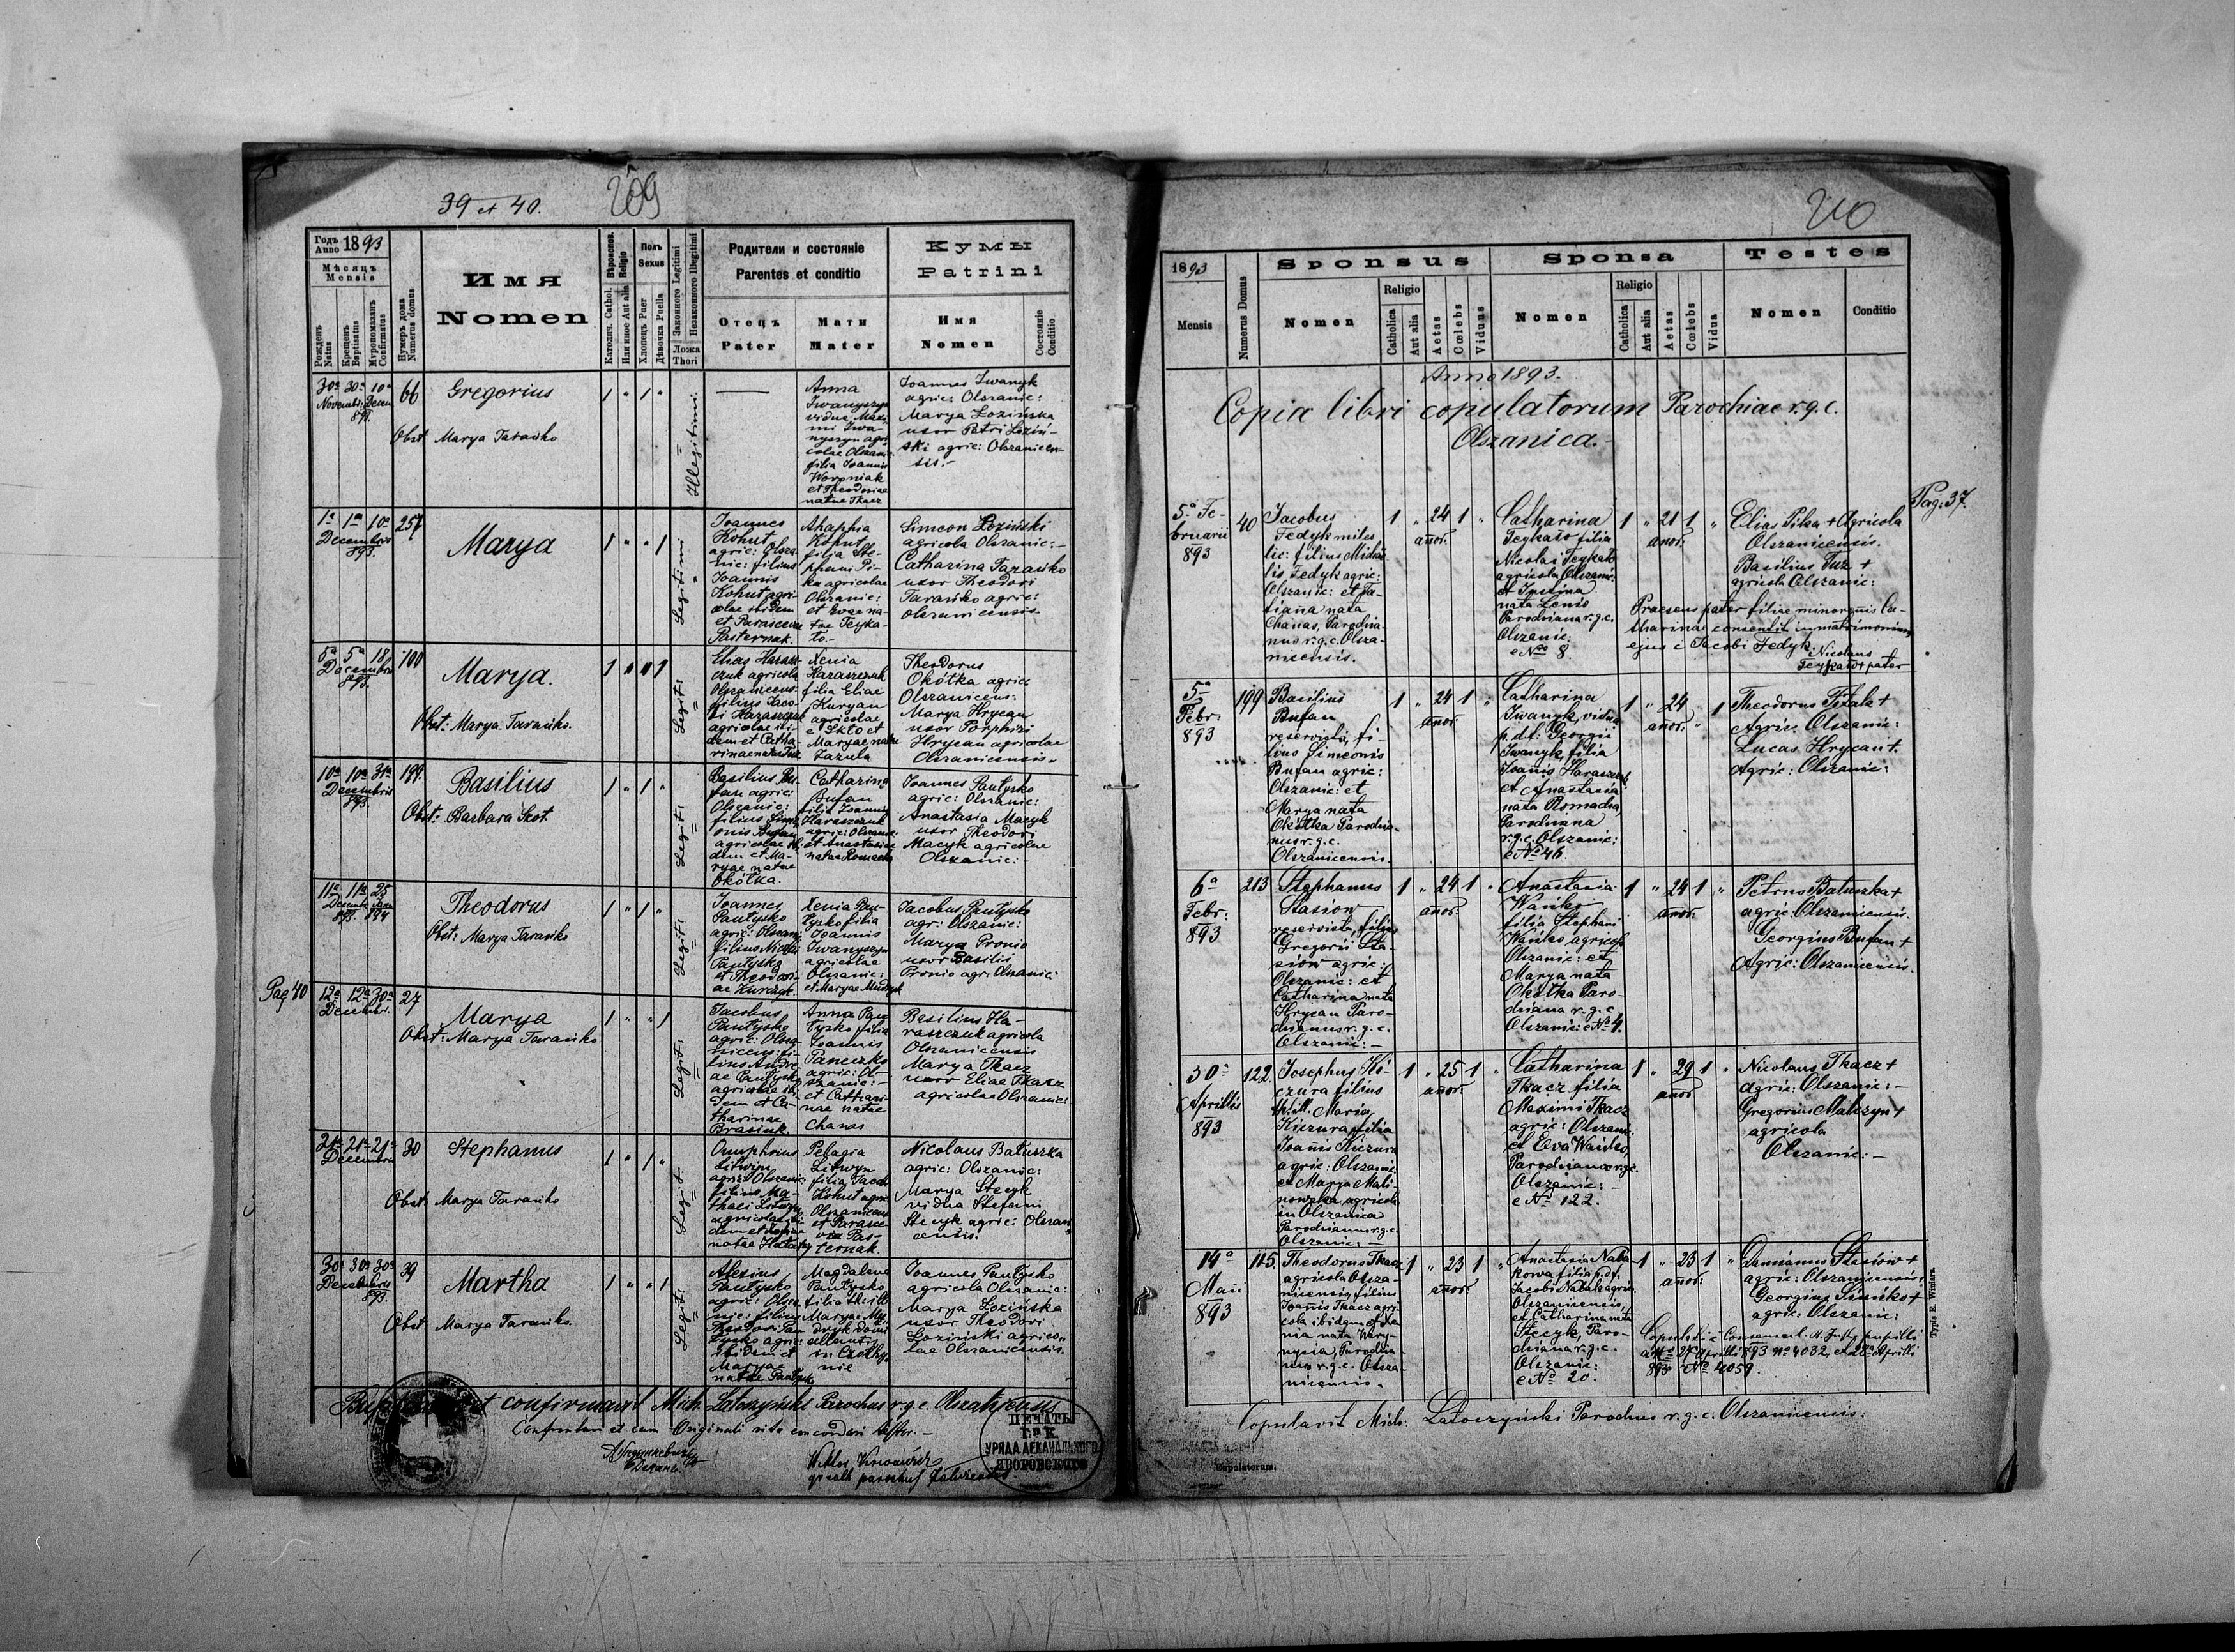 39 et 40.
209
Годъ Anno 1893
Мѣсяцъ Mensis
Рожденъ Natus
Крещенъ Baptisatus
Мѵропомазанъ Confirmatus
Нумеръ дома Numerus domus
Имя
Nomen
Вѣроиспов. Religio
Католич. Cathol.
Или иное Aut alia
Полъ
Sexus
Хлопецъ Puer
Дѣвочка Puella
Законного Legitimi
Незаконного Illegitimi
Ложа
Thori
Родители и состоянiе
Parentes et conditio
Отецъ
Pater
Мати
Mater
Кумы
Patrini
Имя
Nomen
Состоянiе
Conditio
30a 30a 10a
Novembr: Decem
66
Gregorius
Obst: Marya Tarańko
1 " 1 "
Illegitimi
Anna
Iwanyszyn
vidua Maxi-
mi Iwa-
nyszyn agri-
colae Olszani:
filia Joannis
Worpniak
et Theodoriae
natae Tkacz
Joannes Iwanyk
agric: Olszanic:
Marya Łozińska
uxor Petri Łoziń-
ski agric: Olszanicen-
sis.-
1a 1a 10a
Decembris
893.
257
Marya
1 " " 1
Legitimi
Joannes
Kohut
agric: Olsza-
nic: filius
Joannis
Kohut agri-
colae ibidem
et Parascevae
Pasternak.
Ahaphia
Kohut
filia Ste-
phani Pi-
ka agricolae
Olszanic:
et Evae na-
tae Teyka-
to.-
Simeon Łoziński
agricola Olszanic:-
Catharina Tarańko
uxor Theodori
Tarańko agric:
olszanicensis
5a 5a 18
Decembris
893.
100
Marya.
Obst: Marya Tarańko.
1 " " 1
Legiti:
Elias Harasz-
czuk agricola
Olszanicens:
filius Jaco-
bi Haraszczuk
agricolae ibi-
dem et Catha-
rinae natae Tuz
Xenia
Haraszczuk
filia Eliae
Kuryan
agricolae
e Skło et
Maryae natae
Zazula
Theodorus
Okółka agric
Olszanicens:
Marya Hrycan
uxor Porphiri
Hrycan agricolae
Olszanicensis.
10a 10a 31a
Decembris
893.
199.
Basilius
Obst: Barbara Skot.
1 " 1 "
Legiti:
Basilius Bu-
fan agric:
Olszanic:
filius Sime-
onis Bufan
agricolae ibi-
dem et Ma-
ryae natae
Okółka.
Catharina
Bufan
filia Joannis
Haraszczuk
agric: Olszanic:
et Anastasiae
natae Romacha
Joannes Pautysko
agric: Olszanic:
Anastasia Macyk
uxor Theodori
Macyk agricolae
Olszanic:-
11a 11a 25
893. 894
Theodorus
Obst: Marya Tarańko
1 " 1 "
Legiti:
Joannes
Pautysko
agric: Olszani:
filius Nicolai
Pautysko
et Theodosi-
ae Kurczyk.
Xenia Pau-
tysko filia
Joannis
Iwanyszyn
agricolae
Olszanic:
et Maryae Mudryk
Jacobus Pautysko
agr: Olszanic:
Marya Pronio
uxor Basilii
Pronio agr: Olszanic:
Pag 40
12a 12a 30a
Decembr:
27
Marya
Obst: Marya Tarańko
1 " " 1
Legiti:
Jacobus
Pautysko
agric: Olsza-
nicens: fi-
lius Andre-
ae Pautysko
agricolae ibi-
dem et Ca-
tharinae
Brasiuk.
Anna Pau-
tysko filia
Joannis
Paneczko
agric: Ol-
szanic:-
et Cathari-
nae natae
Chanas
Basilius Ha-
raszczuk agricola
Olszanicensis
Marya Tkacz
uxor Eliae Tkacz
agricolae Olszanic:
21a 21a 21a
Decembris
30
Stephanus
Obst: Marya Tarańko
1 " 1 "
Legit:
Onuphrius
Litwyn
agric: Olszanic:
filius Ma-
thaei Litwyn
agricolae ibi-
dem et
natae
Pelagia
Litwyn
filia Jacobi
Kohut agric
Olszanicens
et Parasce-
viae Pas-
ternak.
Nicolaus Batuszka
agric: Olszanic:
Marya Stecyk
vidua Stefani
Stecyk agric: Olszani-
censis.
30a 30a 30a
Decembris
893.
39
Martha
Obst: Marya Tarańko.
1 " " 1
Legiti:
Alexius
Pautysko
agric: Olsza-
nic: filius
Theodori Pau-
tysko agric:
ibidem et
Maryae
natae Pautysko
Magdalena
Pautysko
filia th: illi
Maryae Mu-
dryk domi
in
nie
Joannes Pautysko
agricola Olszanic:
Marya Łozińska
uxor Theodori
Łoziński agrico-
lae Olszanicensis.
Baptisavit et confirmavit Mich. Łatoszyński Parochus r.g.c. Olszanicensis
Confrontavi et cum Originali rite concordari testor.-
ПЕЧАТЬ
ГР. К.
УРЯДА ДЕКАНАЛЬНОГО
ЯВОРОВСКОГО
210
1893
Mensis
Numerus Domus
Sponsus
Nomen
Religio
Catholica
Aut alia
Aetas
Cœlebs
Viduus
Sponsa
Nomen
Religio
Catholica
Aut alia
Aetas
Cœlebs
Vidua
Testes
Nomen
Conditio
Anno 1893.
Copia libri copulatorum Parochiae r.g.c.
Olszanica.-
Pag: 37.
5a Fe-
bruarii
893
40
Jacobus
Fedyk miles
lic: filius Micha-
lis Fedyk agric:
Olszanic: et Ta-
tiana nata
Chanas, Parochia-
nus r.g.c. Olsza-
nicensis.
1 " 24 1 "
anor.
Catharina
Teykało filia
Nicolai Teykało
agricola Olszanic:
et Justina
nata Lenio
Parochiana r.g.c.
Olszanic:
e No 8.
1 " 21 1 "
anor.
Elias Pika + Agricola
Olszanicensis.
Basilius Tuz +
agricola Olszanic:
Praesens pater filiae minorenis Ca-
tharinae consentit in matrimonium
ejus c Jacobi Fedyk.
Nicolaus
Teykało + pater
5a
Febr:
893
199
Basilius
Bufan
reservista, fi-
lius Simeonis
Bufan agric:
Olszanic: et
Marya nata
Okółka Parochia-
nus r.g.c.
Olszanicensis.
1 " 24 1 "
anor.
Catharina
Iwanyk, vidua
p. df. Georgii
Iwanyk, filia
Joanis Haraszczuk
et Anastasia
nata Romacha,
Parochiana
r.g.c. Olszanic:
e No 46.
1 " 24 " 1
anor.
Theodorus +
Agric. Olszanic:
Lucas Hrycan +
Agric: Olszanic:
6a
Febr:
893
213
Stephanus
Stasiow
reservista, filius
Gregorii Sta-
siow agric:
Olszanic: et
Catharina nata
Hrycan Paro-
chianus r.g.c.
Olszanic:-
1 " 24 1 "
anor.
Anastasia
Wańko
filia Stephani
Wańko agricol
Olszanic: et
Marya nata
Okółka Paro-
chiana r.g.c
Olszanic: e No 4.
1 " 24 1 "
anor.
Petrus Batuszka +
agric: Olszanicensis.
Georgius Bufan +
Agric: Olszanicensis.
30a
Aprillis
893
122.
Josephus Ki-
czura filius
th: ill. Maria
Kiczura, filia
Joanis Kiczura
agric: Olszanic:
et Marya Mali-
nowska agricola
in Olszanica
Parochianus r.g.c.
Olszanic:-
1 " 25 1 "
anor.
Catharina
Tkacz filia
Maximi Tkacz
agric: Olszanic:
et Eva Wańko,
Parochiana r.g.c.
Olszanic:-
e No 122.
1 " 29 1 "
anor
Nicolaus Tkacz +
agric: Olszanic:-
Gregorius Malczyn +
agricola
Olszanic:-
14a
Maii
893
115.
Theodorus Tkacz
agricola Olsza-
nicensis, filius
Joanis Tkacz agri-
cola ibidem et Xe-
nia nata Wary-
nycia, Parochia-
nus r.g.c. Olsza-
nicensis.
1 " 23 1 "
anor.
Anastasia Naha-
kowa filia p.df.
Jacobi Nahak agric:
Olszanicensis,
et Catharina nata
Stecyk, Paro-
chiana r.g.c.
Olszanic:
e No 20.
1 " 23 1 "
anor:
Damianus Stasiow +
agric: Olszanicensis;
Georgius Sińko +
agric: Olszanic:
Copulati c Consensu pupillis
Aprilli 893 No 4032, et 22a Aprilli
893 No 4059.
Copulavit Mich: Łatoszyński Parochus r.g.c. Olszanicensis.
Copulatorum.
Typis E. Winiarz.